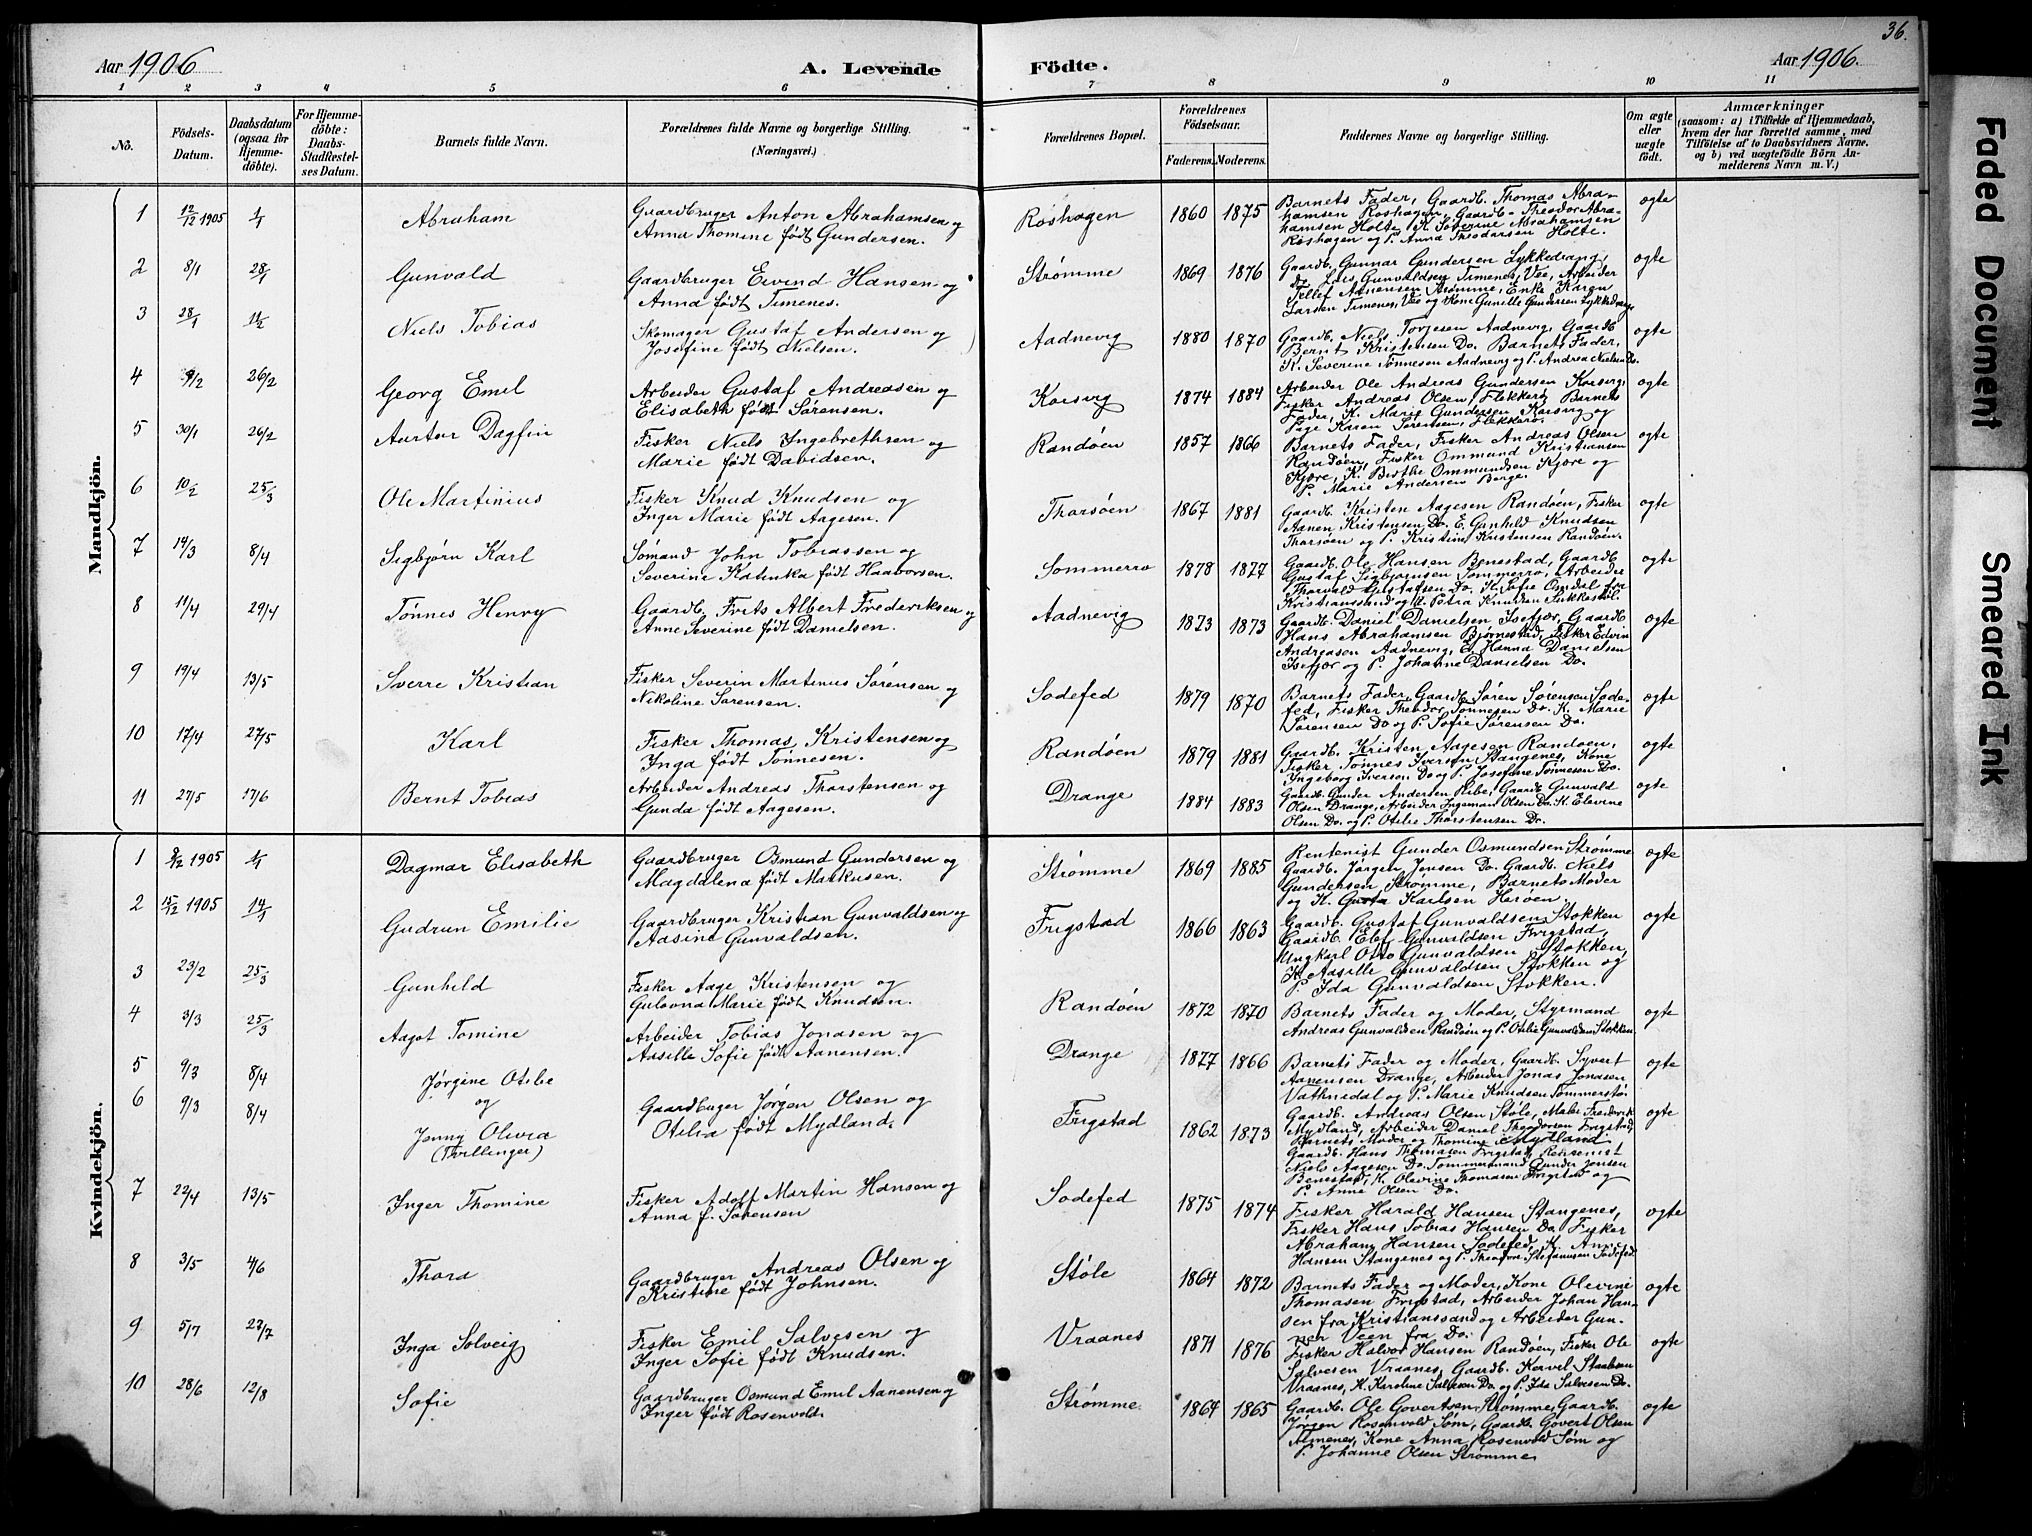 36.
Aar 1906
A. Levende
Födte.
Aar 1906.
1 2 3 4 5 6 7 8 9 10 11
No.
Födsels-Datum.
Daabsdatum (ogsaa for Hjemme-döbte).
For Hjemme-döbte: Daabs-Stadfæstel-ses Datum.
Barnets fulde Navn.
Forældrenes fulde Navne og borgerlige Stilling.
(Næringsvei.)
Forældrenes Bopæl.
Forældrenes Födselsaar.
Faderens. Moderens.
Faddernes Navne og borgerlige Stilling.
Om ægte eller uægte födt.
Anmærkninger
(saasom: a) i Tilfælde af Hjemmedaab,
hvem der har forrettet samme, med
Tilföielse af to Daabsvidners Navne.
og b) ved uægtefödte Börn An-
melderens Navn m. V.)
Mandkjön.
1 12/12 1905 1/1 Abraham Gaardbruger Anton Abrahamsen og
Anna Thomine født Gundersen. Røshagen 1860 1875 Barnets Fader, Gaardb. Thomas Abra-
hamsen Røshagen, Gaardb. Theodor Abra-
hamsen Holte, K. Severine Abrahamsen
Røshagen og P. Anna Theodorsen Holte. ægte
2 8/1 28/1 Gunvald Gaardbruger Eivind Hansen og
Anna født Timenes. Strømme 1869 1876 Gaardb. Gunnar Gundersen Lykkedrang,
do Lars Gunvaldsen Timenes, Vee, Arbeider
Tellef Aanensen Strømme, Enke Karen
Larsen Timenes, Vee og Kone Gunille Gundersen Lykkedrang ægte
3 28/1 11/2 Niels Tobias Skomager Gustaf Andersen og
Josefine født Nielsen. Aadnevig 1880 1870 Gaardb. Niels Torjesen Aadnevig, Gaardb.
Bernt Kristensen Do. Barnets Fader,
K. Severine Tønnesen Aadnevig og P. Andrea Nielsen Do. ægte
4 9/2 26/2 Georg Emil Arbeider Gustaf Andreasen og
Elisabeth født Sørensen. Korsvig 1874 1884 Arbeider Ole Andreas Gundersen Korsvig,
Fisker Andreas Olsen, Flekkerø, Barnets
Fader, K. Marie Gundersen Korsvig og
Pige Karen Sørensen, Flekkerø. ægte
5 30/1 26/2 Aartor Dagfin Fisker Niels Ingebrethsen og
Marie født Davidsen. Randøen 1857 1866 Barnets Fader, Fisker Andreas Olsen
Randøen, Fisker Ommund Kristiansen
Kjøre, K. Berthe Ommundsen Kjøre og
P. Marie Andersen Berge. ægte
6 10/2 25/3 Ole Martinius Fisker Knud Knudsen og
Inger Marie født Aagesen. Tharsøen 1867 1881 Gaardb. Kristen Aagesen Randøen, Fisker
Aanen Kristensen Do. E. Gunhild Knudsen
Tharsøen og P. Kristine Kristensen Randøen. ægte
7 14/3 8/4 Sigbjørn Karl Sømand John Tobiassen og
Severine Katinka født Haaborsen. Sommerro 1878 1877 Gaardb. Ole Hansen Benestad, Gaardb.
Gustaf Sigbjørnsen Sommerro, Arbeider
Thorvald Gustafsen Do. K. Sofie Omdal fra
Kristianssand og P. Petra Knudsen Sukkestøl. ægte
8 11/4 29/4 Tønnes Henry Gaardb. Frits Albert Frederiksen og
Anne Severine født Danielsen. Aadnevig 1873 1873 Gaardb. Daniel Danielsen Isefjær, Gaardb.
Hans Abrahamsen Bjørnestad, Fisker Edvin
Andreasen Aadnevig, E. Hanna Danielsen
Isefjær og P. Johanne Danielsen Do. ægte
9 19/4 13/5 Sverre Kristian Fisker Severin Martinus Sørensen og
Nikoline Sørensen. Sodefed 1879 1870 Barnets Fader, Gaardb. Søren Sørensen Sode-
fed, Fisker Theodor Tønnesen Do. K. Marie
Sørensen Do og P. Sofie Sørensen Do. ægte
10 17/4 27/5 Karl Fisker Thomas Kristensen og
Inga født Tønnesen. Randøen 1879 1881 Gaardb. Kristen Aagesen Randøen,
Fisker Tønnes Iversen Stangenes, Kone
Ingeborg Iversen Do og P. Josefine Tønnesen Do. ægte
11 27/5 17/6 Bernt Tobias Arbeider Andreas Thorstensen og
Gunda født Aagesen. Drange 1884 1883 Gaardb. Gunder Andersen Ribe, Gaardb Gunvald
Olsen Drange, Arbeider Ingeman Olsen Do. K. Elevine
Olsen Do. og P. Otilie Thorstensen Do. ægte
Kvindekjön.
1 9/12 1905 1/1 Dagmar Elisabeth Gaardbruger Osmund Gundersen og
Magdalena født Markusen. Strømme 1869 1885 Rentenist Gunder Osmundsen Strømme
Gaardb. Jørgen Jensen Do. Gaardb. Niels
Gundersen Strømme, Barnets Moder
og K. Gusta Karlsen Herøen. ægte
2 15/12 1905 14/1 Gudrun Emilie Gaardbruger Kristian Gunvaldsen og
Aasine Gunvaldsen. Frigstad 1866 1863 Gaardb. Gustaf Gunvaldsen Stokken
Gaardb. Elef Gunvaldsen Frigstad,
Ungkarl Otto Gunvaldsen Stokken,
K. Aasille Gunvaldsen Stokken og
P. Ida Gunvaldsen Stokken. ægte
3 23/2 25/3 Gunhild Fisker Aage Kristensen og
Gulovna Marie født Knudsen. Randøen 1872 1870 Barnets Fader og Moder, Styrmand
Andreas Gunvaldsen Randøen og P. Otilie Gunvaldsen Stokken. ægte
4 3/3 25/3 Aagot Tomine Arbeider Tobias Jonasen og
Aasille Sofie født Aanensen. Drange 1877 1866 Barnets Fader og Moder, Gaardb. Syvert
Aanensen Drange, Arbeider Jonas Jonasen
Vathnedal og P. Marie Knudsen Tommerstø ægte
5 9/3 8/4 Jørgine Otilie
og
6 9/3 8/4 Jenny Olivia
(Tvillinger) Gaardbruger Jørgen Olsen og
Otilia født Mydland. Frigstad 1862 1873 Gaardb. Andreas Olsen Støle, Maler Frederik
Mydland, Arbeider Daniel Theodorsen Frigstad,
Barnets Moder og Thomine Mydland.
Gaardb. Hans Thomasen Frigstad, Rensenist
Niels Aagesen Do. Tommermand Gunder Jensen
Benestad, K. Olevine Thomasen Frigstad og
P. Anne Olsen Do. ægte
7 22/4 13/5 Inger Thomine Fisker Adolf Martin Hansen og
Anna f. Sørensen Sodefed 1875 1874 Fisker Harald Hansen Stangenes,
Fisker Hans Tobias Hansen Do, Fisker
Abraham Hansen Sodefed, K. Anne
Hansen Stangenes og P. Theodore Stefanusen Sodefed ægte
8 3/5 4/6 Thora Gaardbruger Andreas Olsen og
Kristine født Johnsen. Støle 1864 1872 Barnets Fader og Moder, Kone Olevine
Thomasen Frigstad, Arbeider Johan Han-
sen fra Kristianssand og Arbeider Gun-
ner Veen fra Do. ægte
9 5/7 23/7 Inga Solveig Fisker Emil Salvesen og
Inger Sofie født Knudsen. Vraanes 1871 1876 Fisker Halvor Hansen Randøen, Fisker Ole
Salvesen Vraanes, Gaardb. Kervel Staalesen
Vraanes, K. Karoline Salvesen Do. og P. Ida Salvesen Do. ægte
10 28/6 12/8 Sofie Gaardbruger Osmund Emil Aanensen og
Inger født Rosenvold. Strømme. 1864 1865 Gaardb. Ole Govertsen Strømme, Gaardb.
Jørgen Rosenvold Søm, Gaardb. Govert Olsen
Timenes, Kone Anna Rosenvold Søm og
P. Johanne Olsen Strømme. ægte
Faded Document
Smeared Ink